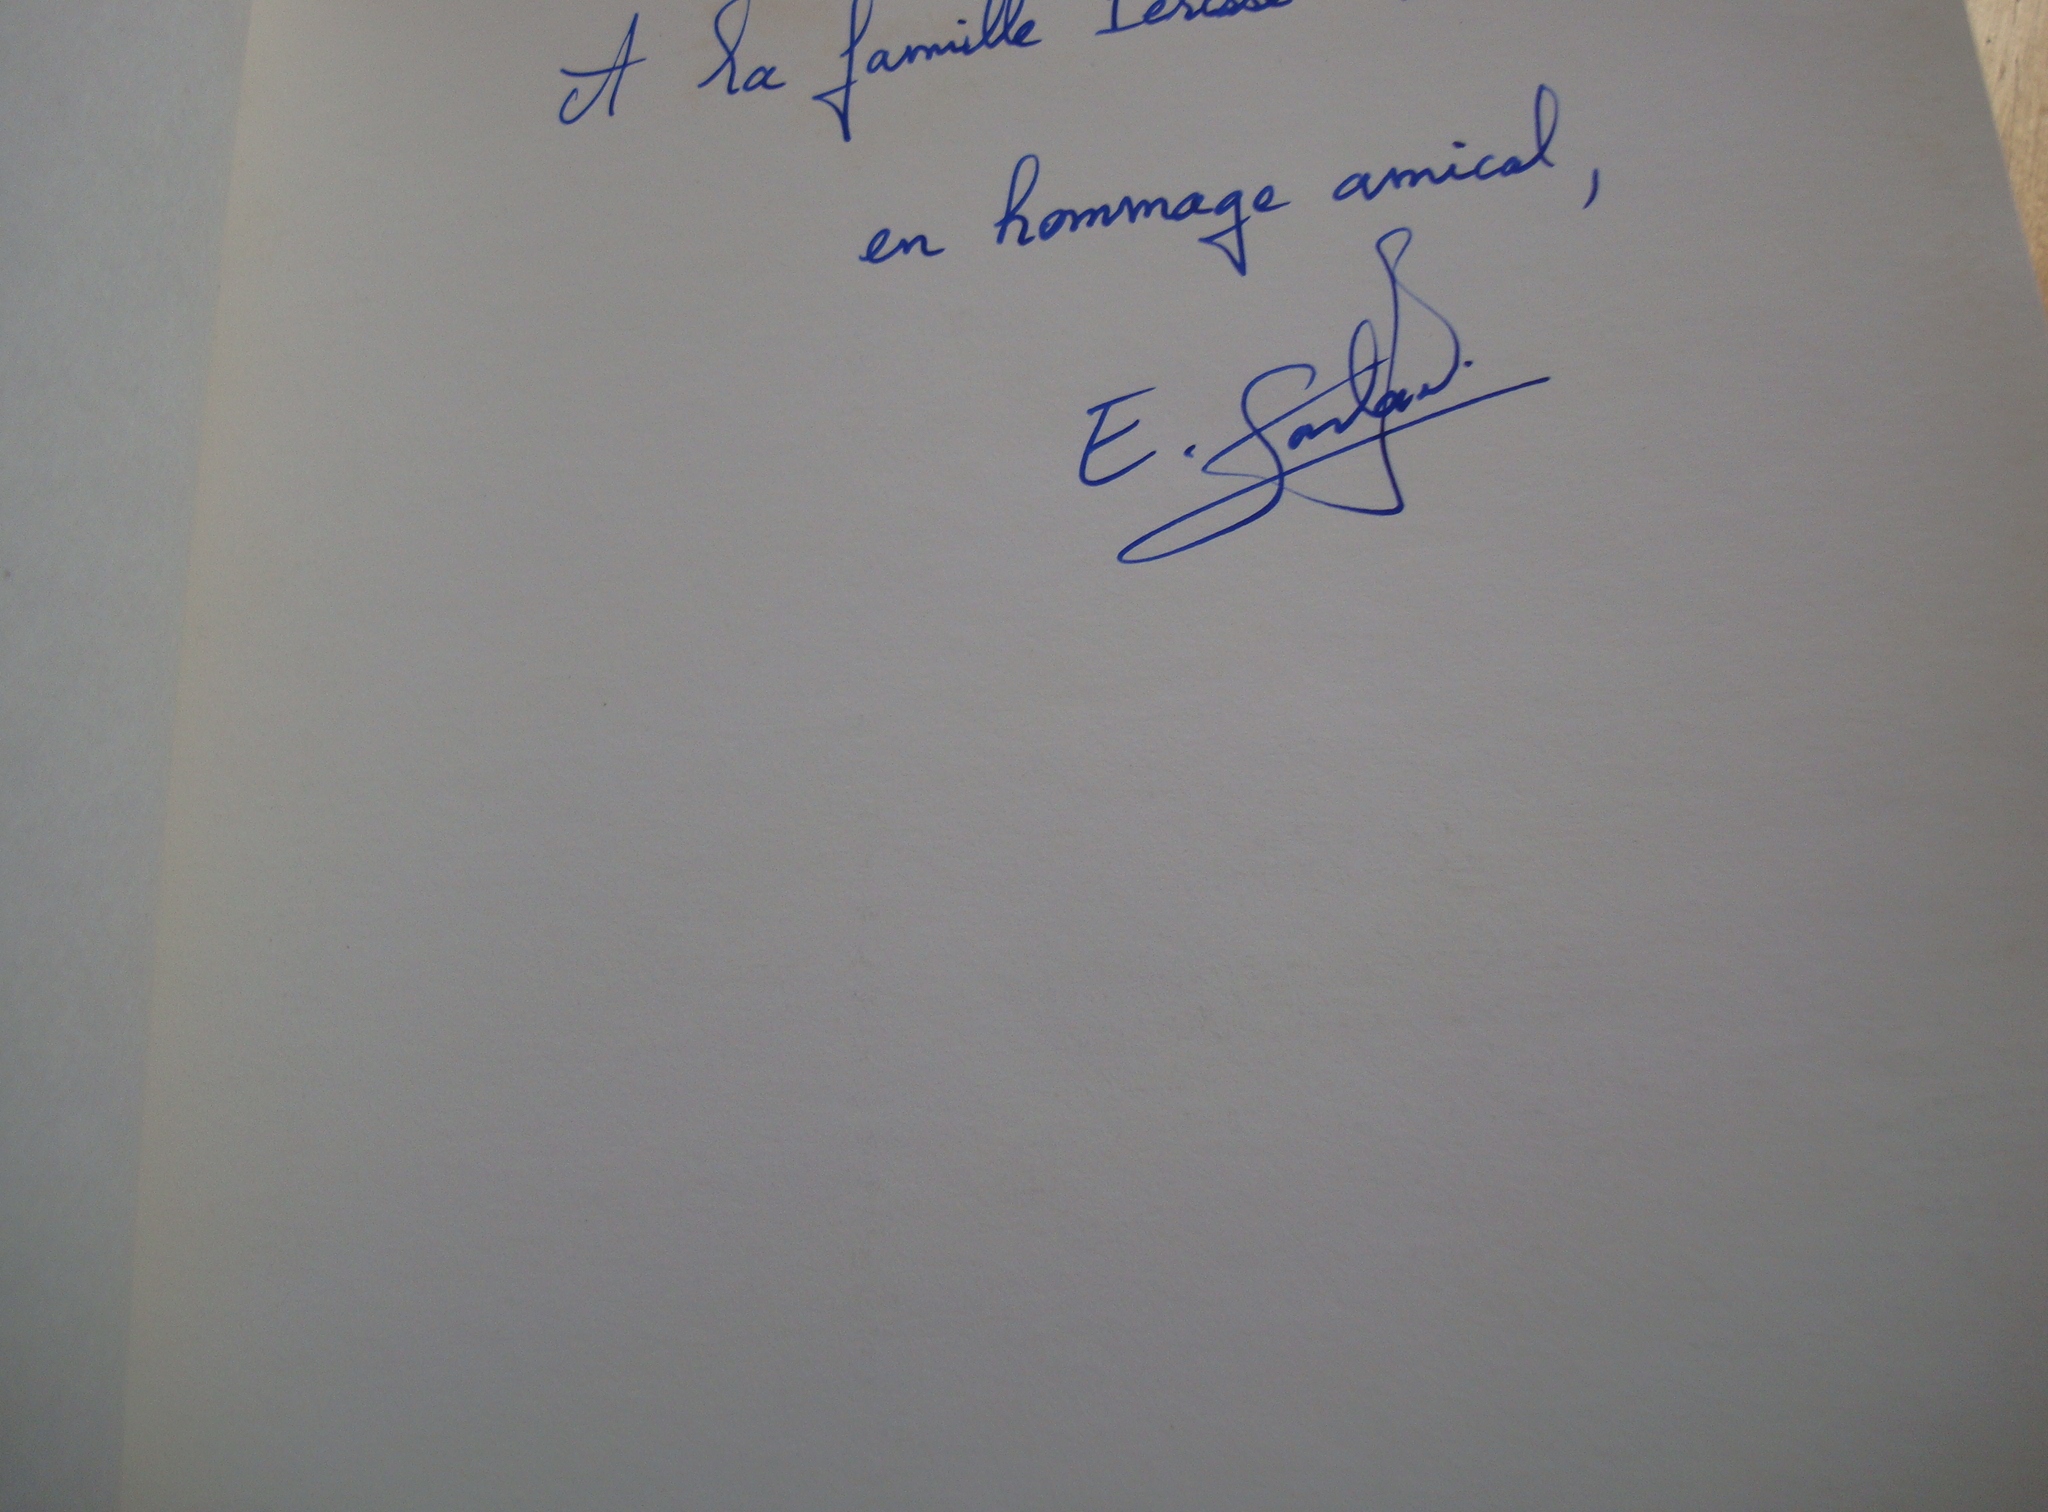 A la famille
en hommage amical,
E.